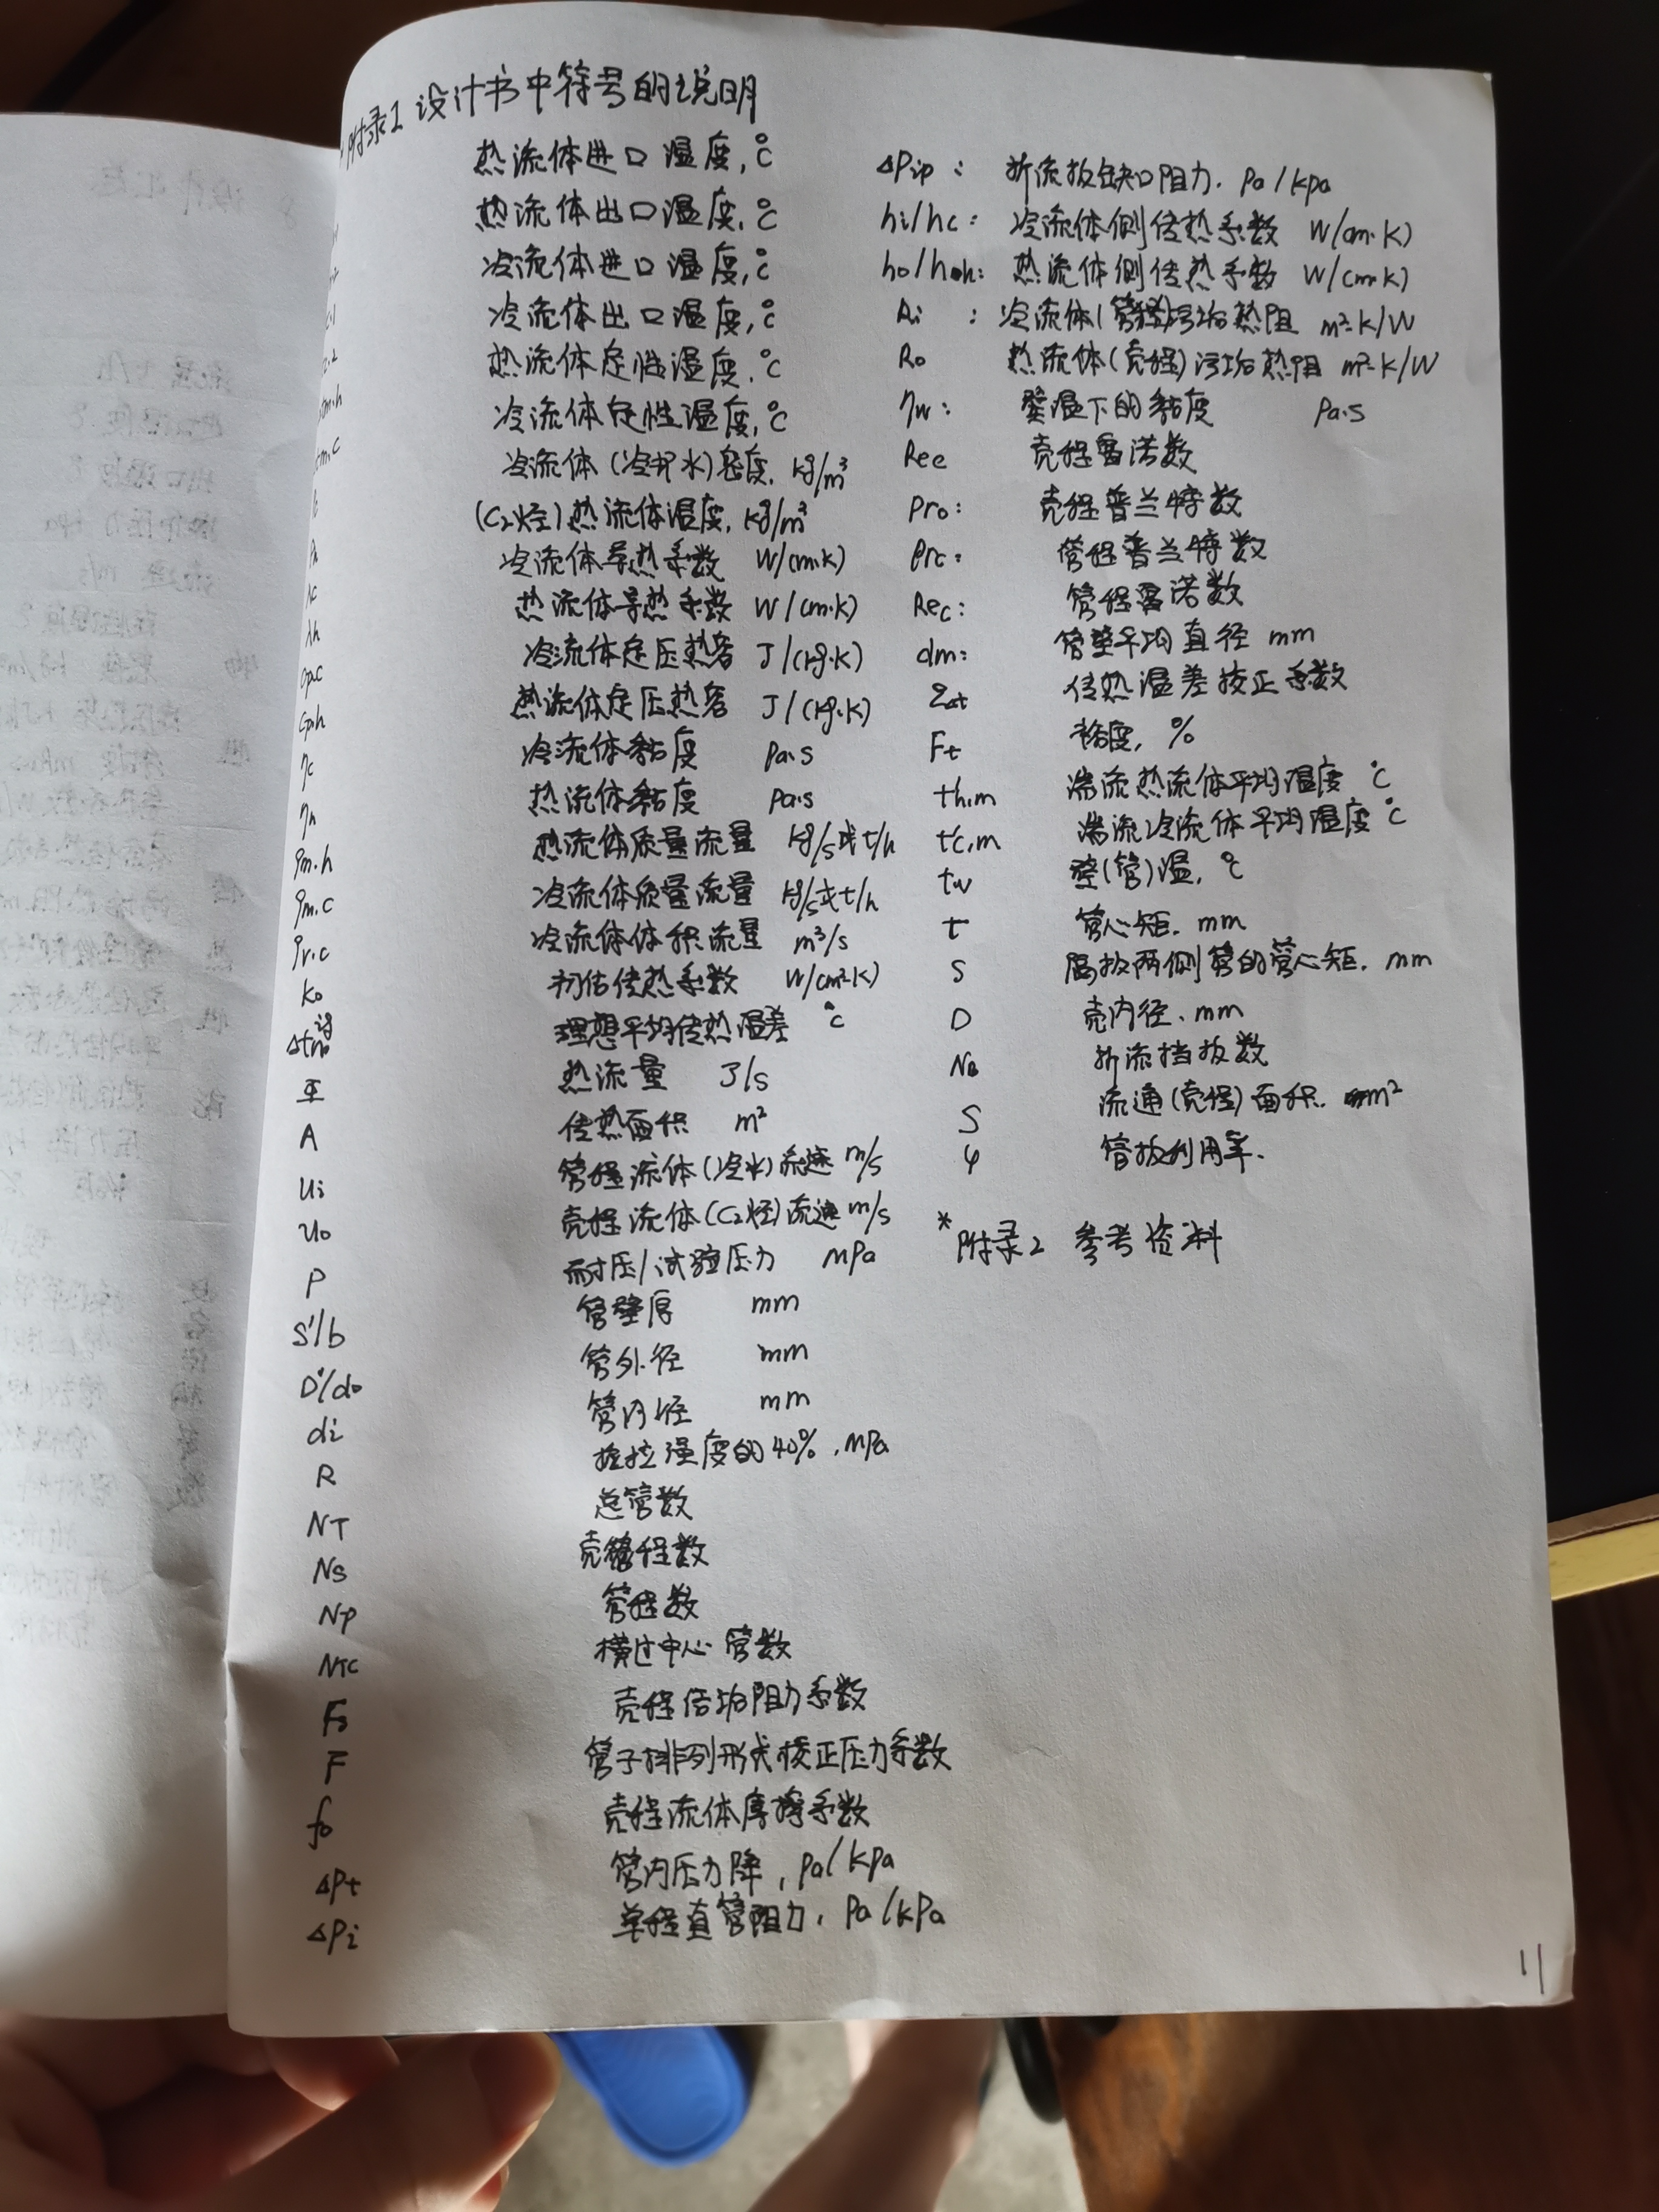 附录1 设计书中符号的说明
热流体进口温度,℃
热流体出口温度,℃
冷流体进口温度,℃
冷流体出口温度,℃
热流体定性温度,℃
tm.c 冷流体定性温度,℃
冷流体(冷却水)密度, kg/m³
ρh (C₂烃)热流体温度, kg/m³
λc 冷流体导热系数 W/(m.k)
λh 热流体导热系数 W/(m.k)
Cp.c 冷流体定压热容 J/(kg.K)
Cp.h 热流体定压热容 J/(kg.K)
ηc 冷流体黏度 Pa.s
ηh 热流体黏度 Pa.s
qm.h 热流体质量流量 kg/s或t/h
qm.c 冷流体质量流量 kg/s或t/h
qv.c 冷流体体积流量 m³/s
k₀ 初估传热系数 W/(m².K)
理想平均传热温差 ℃
热流量 J/s
A 传热面积 m²
ui 管程流体(冷水)流速 m/s
uo 壳程流体(C₂烃)流速 m/s
P 耐压/试验压力 MPa
S'/b 管壁厚 mm
D'/do 管外径 mm
di 管内径 mm
R 抗拉强度的40%,MPa
NT 总管数
Ns 壳程数
Np 管程数
NTC 横过中心管数
Fs 壳程结垢阻力系数
F 管子排列形式校正压力系数
fo 壳程流体摩擦系数
ΔPt 管内压力降, pa/kpa
ΔPi 单程直管阻力, Pa/kPa
ΔPip: 折流板缺口阻力. Pa/kpa
hi/hc: 冷流体侧传热系数 W/(m.K)
ho/hoh: 热流体侧传热系数 W/(m.K)
Ri : 冷流体(管程)污垢热阻 m².K/W
Ro 热流体(壳程)污垢热阻 m².K/W
ηw: 壁温下的黏度 Pa.s
Ree 壳程雷诺数
Pro: 壳程普兰特数
Prc: 管程普兰特数
Rec: 管程雷诺数
dm: 管壁平均直径 mm
εΔt 传热温差校正系数
Ft 裕度, %
th,m 湍流热流体平均温度 ℃
tc,m 湍流冷流体平均温度 ℃
tw 壁(管)温, ℃
t 管心矩. mm
S 隔板两侧管的管心矩. mm
D 壳内径、mm
NB 折流挡板数
S 流通(壳程)面积. m²
φ 管板利用率.
*附录2 参考资料
11